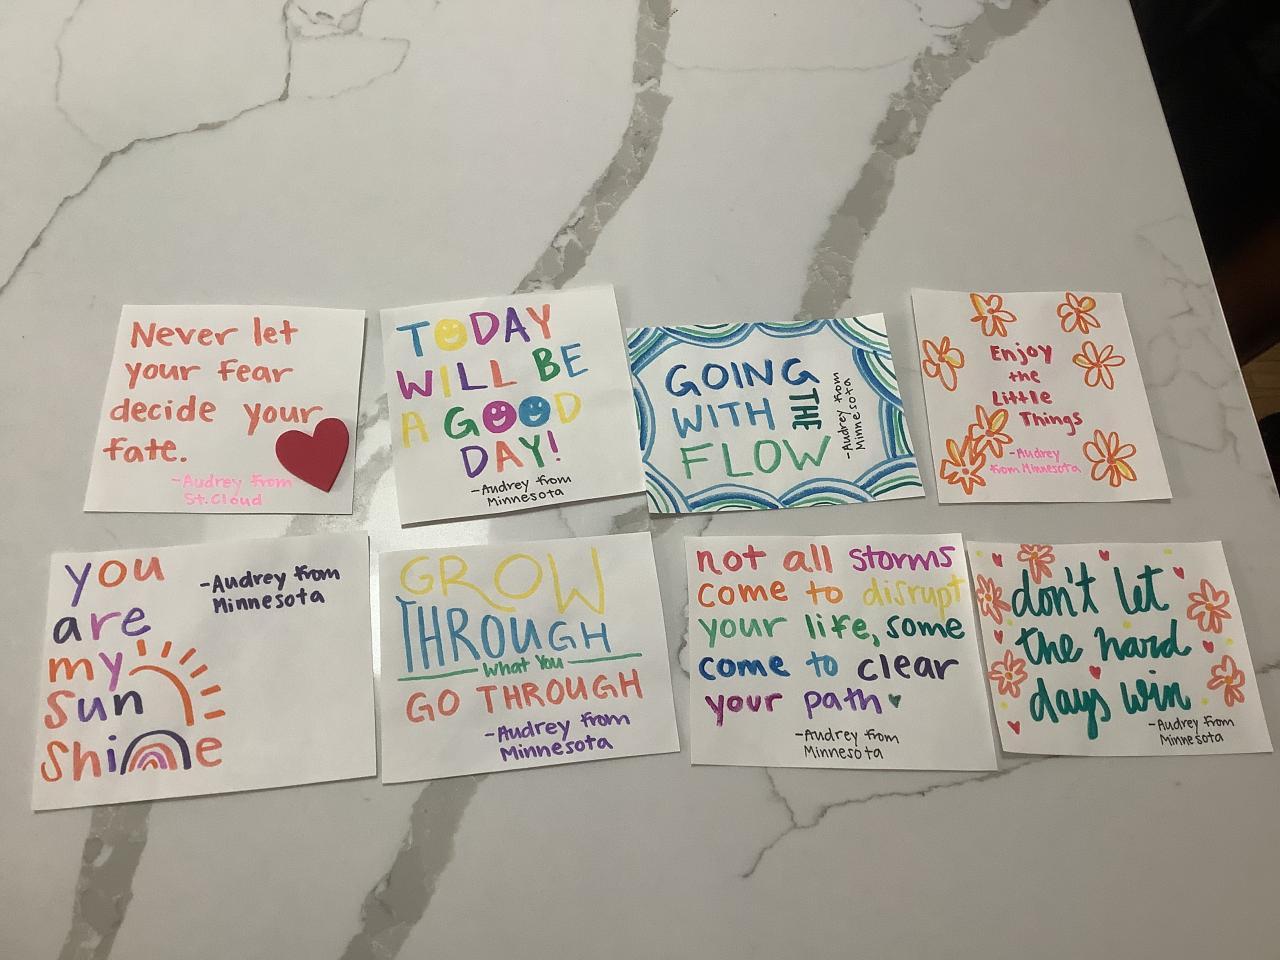 Never let
your fear
decide your
fate.
-Audrey from
St.Cloud
TODAY
WILL BE
A GOOD
DAY!
-Audrey from
Minnesota
GOING
WITH THE
FLOW
-Audrey from
Minnesota
Enjoy
the
Little
Things
-Audrey
from Minnesota
you
are
my
sun
shine
-Audrey from
Minnesota
GROW
THROUGH
What You
GO THROUGH
-Audrey from
Minnesota
not all storms
come to disrupt
your life, some
come to clear
your path
-Audrey from
Minnesota
don't let
the hard
days win
-Audrey from
Minnesota